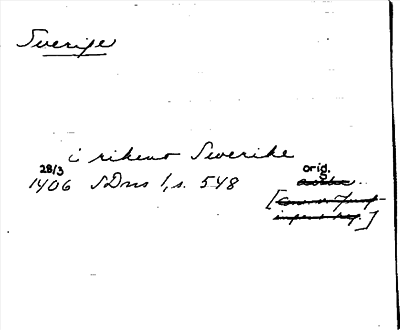 Sverige
i rikeno Swerike
28/3 orig.
1406 SDns 1, s. 548